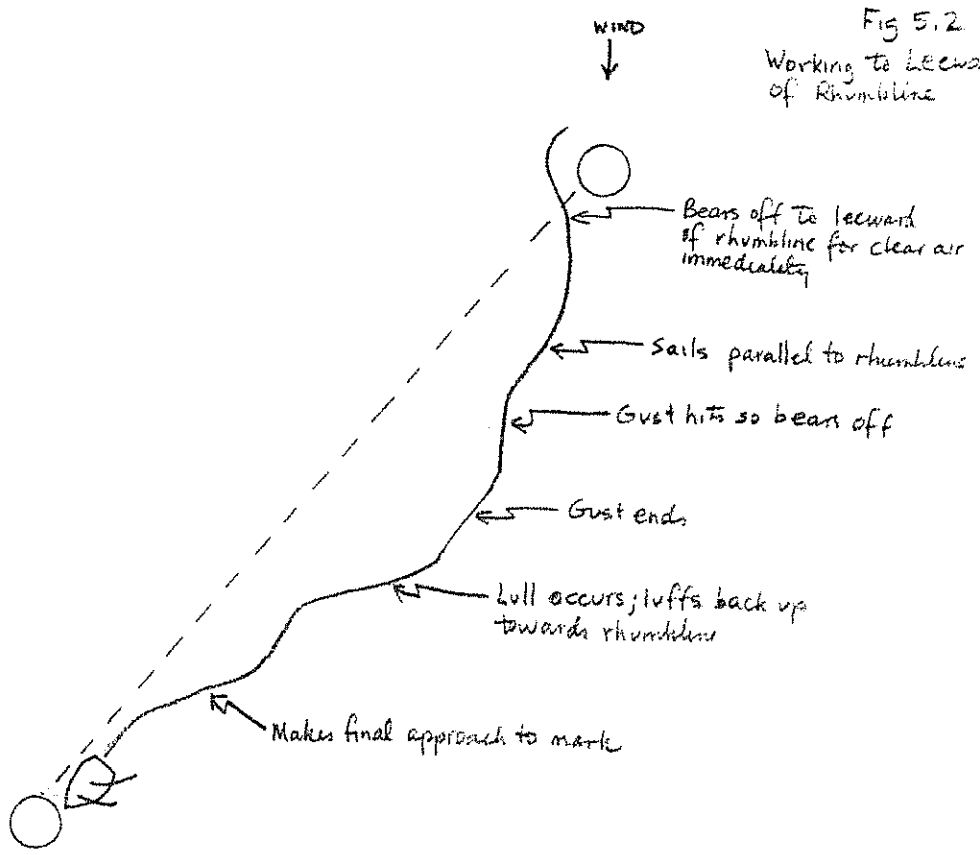 WIND
Fig 5.2
Working to Leewa
of Rhumbline
Bears off to leeward
of rhumbline for clear air
immediately
Sails parallel to rhumbline
Gust hits so bears off
Gust ends
Lull occurs; luffs back up
towards rhumbline
Makes final approach to mark